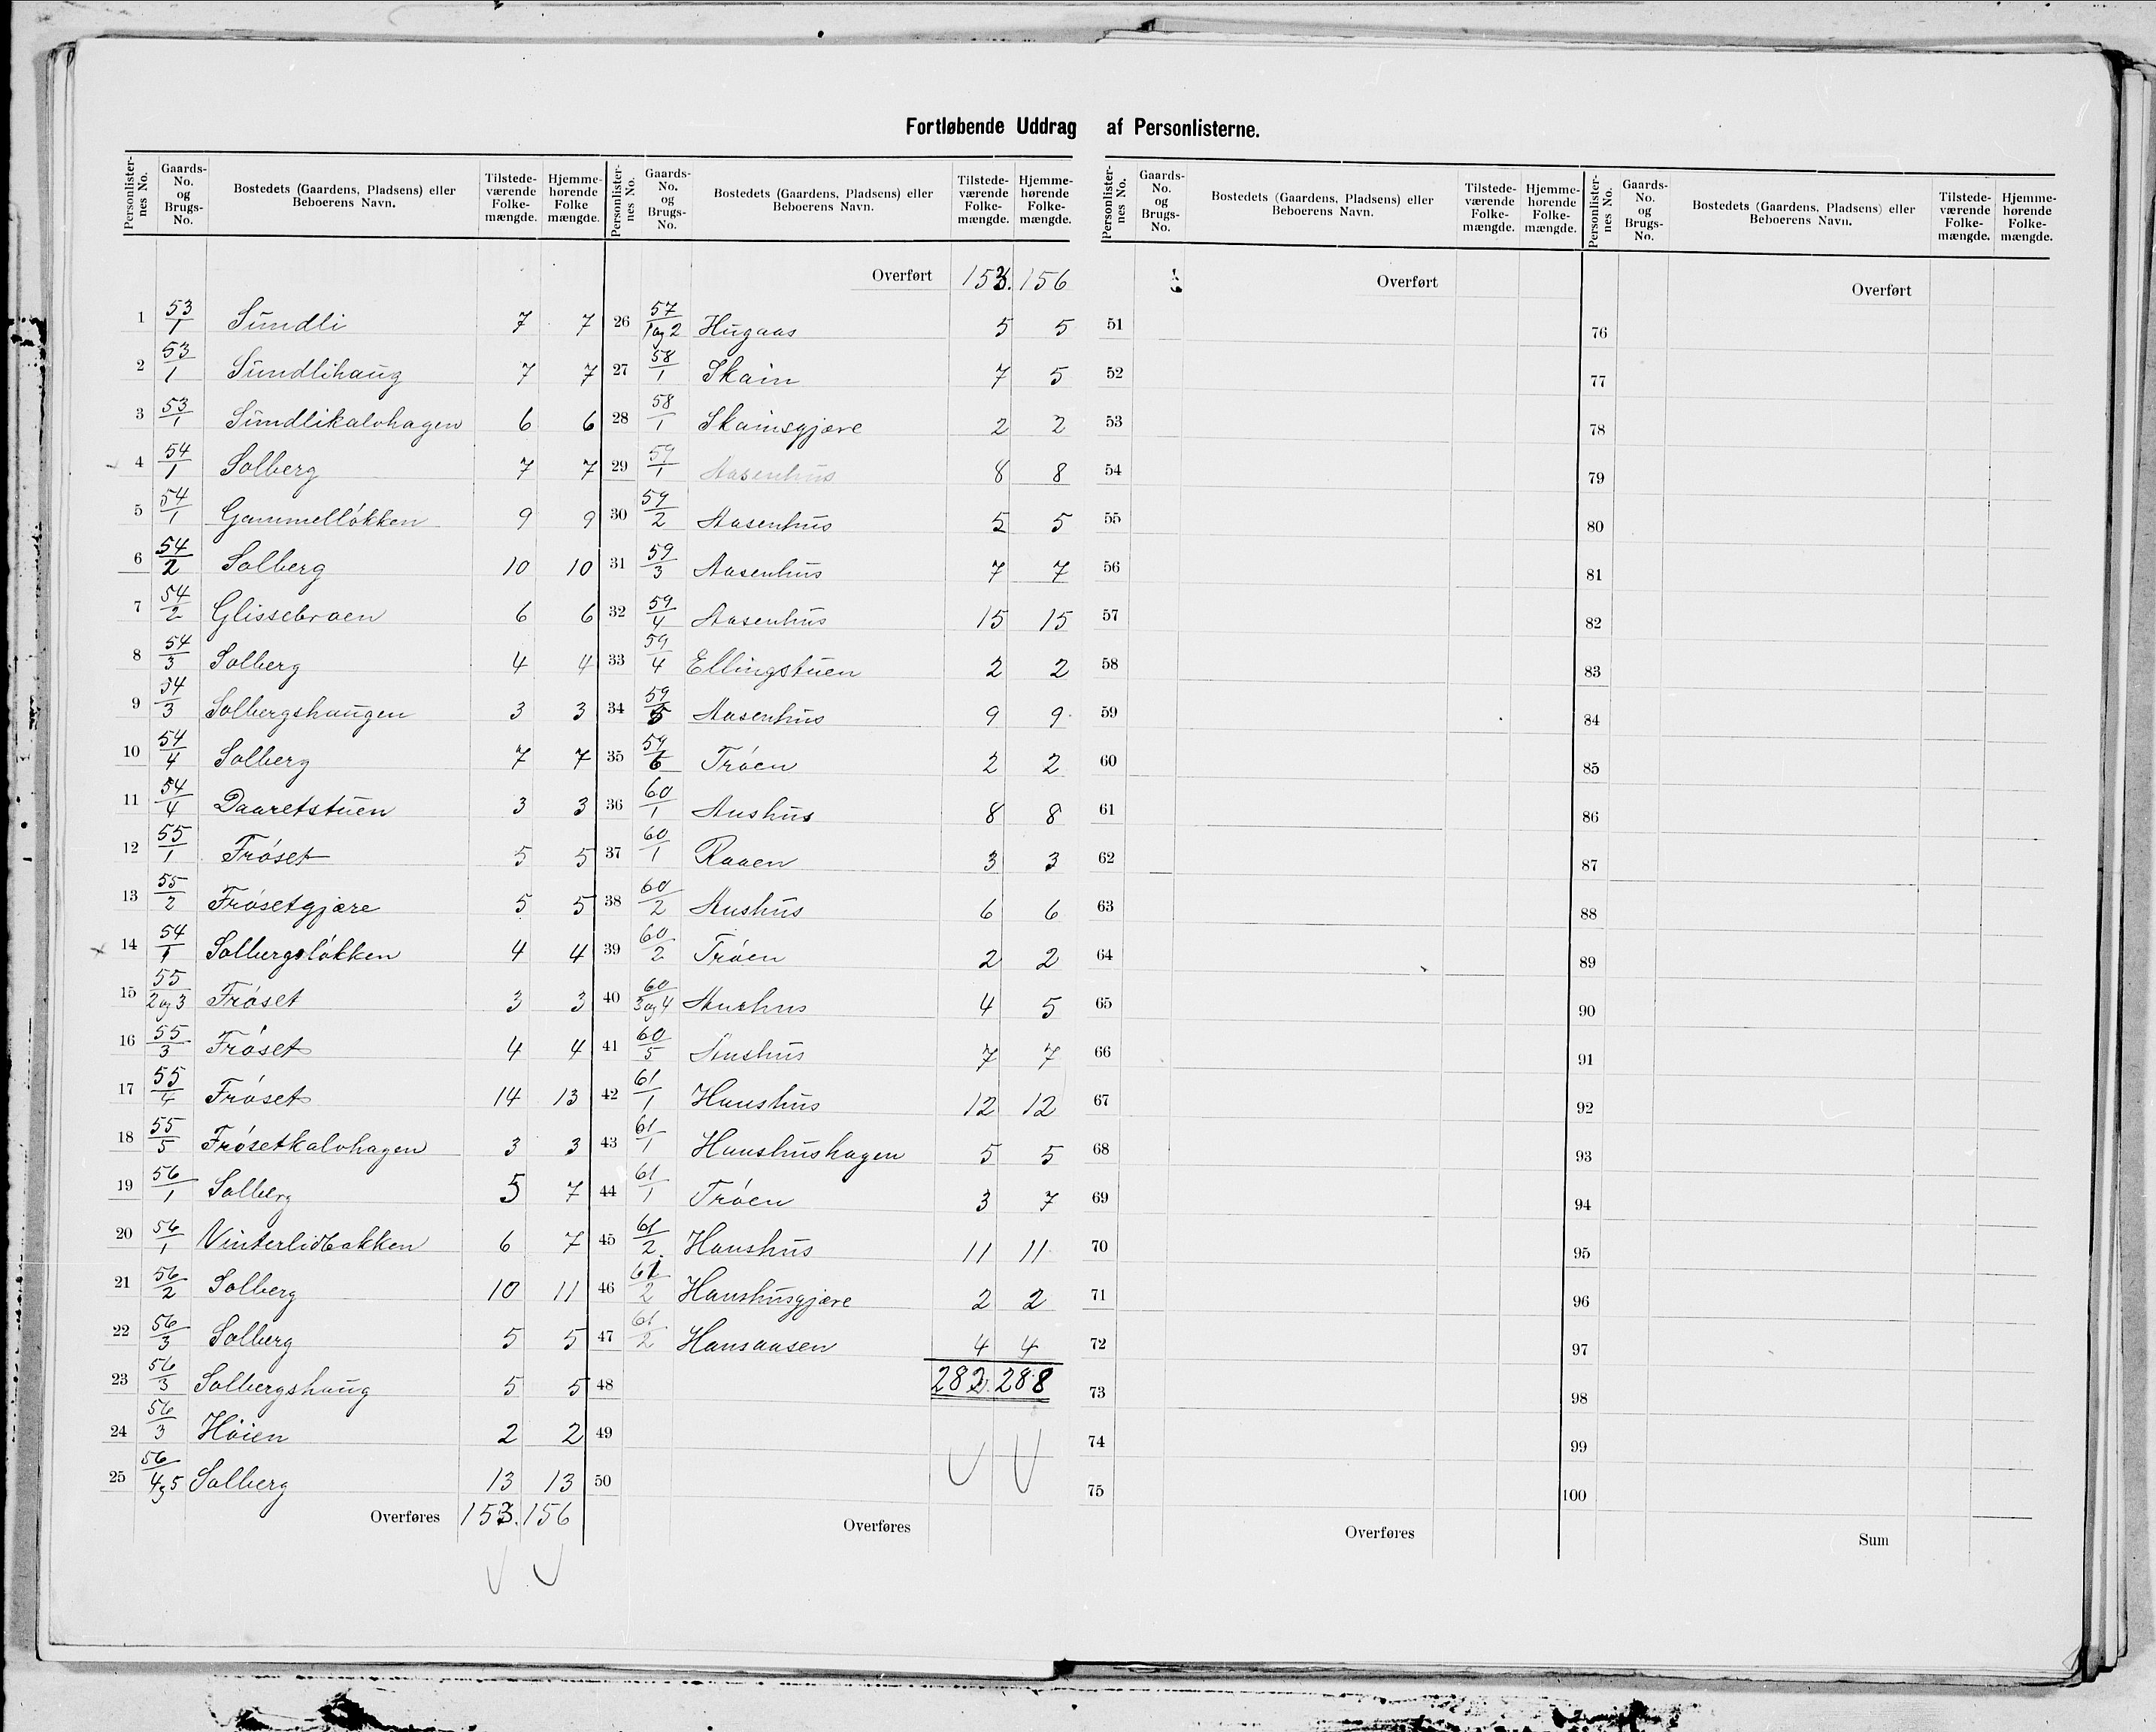 Fortløbende Uddrag af Personlisterne.
Personlisternes No. | Gaards-No. og Brugs-No. | Bostedets (Gaardens, Pladsens) eller Beboerens Navn. | Tilstedeværende Folkemængde. | Hjemmehørende Folkemængde.
1 53/1 Sundli 7 7
2 53/1 Sundlihaug 7 7
3 53/1 Sundlikalvhagen 6 6
4 54/1 Solberg 7 7
5 54/1 Gammelløkken 9 9
6 54/2 Solberg 10 10
7 54/2 Glissebroen 6 6
8 54/3 Solberg 4 4
9 54/3 Solbergshaugen 3 3
10 54/4 Solberg 7 7
11 54/4 Daaretstuen 3 3
12 55/1 Frøset 5 5
13 55/2 Frøsetgjære 5 5
14 54/1 Solbergsløkken 4 4
15 55/2 og 3 Frøset 3 3
16 55/3 Frøset 4 4
17 55/4 Frøset 14 13
18 55/5 Frøsetkalvhagen 3 3
19 56/1 Solberg 5 7
20 56/1 Vinterlidbakken 6 7
21 56/2 Solberg 10 11
22 56/3 Solberg 5 5
23 56/3 Solbergshaug 5 5
24 56/3 Høien 2 2
25 56/4 og 5 Solberg 13 13
Overføres 153. 156
Personlisternes No. | Gaards-No. og Brugs-No. | Bostedets (Gaardens, Pladsens) eller Beboerens Navn. | Tilstedeværende Folkemængde. | Hjemmehørende Folkemængde.
Overført 153. 156
26 57/1 og 2 Hugaas 5 5
27 58/1 Skain 7 5
28 58/1 Skainsgjære 2 2
29 59/1 Aasenhus 8 8
30 59/2 Aasenhus 5 5
31 59/3 Aasenhus 7 7
32 59/4 Aasenhus 15 15
33 59/4 Ellingstuen 2 2
34 59/5 Aasenhus 9 9
35 59/6 Trøen 2 2
36 60/1 Aushus 8 8
37 60/1 Raaen 3 3
38 60/2 Aushus 6 6
39 60/2 Trøen 2 2
40 60/3 og 4 Aushus 4 5
41 60/5 Aushus 7 7
42 61/1 Haushus 12 12
43 61/1 Haushushagen 5 5
44 61/1 Trøen 3 7
45 61/2 Haushus 11 11
46 61/2 Haushusgjære 2 2
47 61/2 Hansaasen 4 4
48 282. 288
49
50
Overføres
Personlisternes No. | Gaards-No. og Brugs-No. | Bostedets (Gaardens, Pladsens) eller Beboerens Navn. | Tilstedeværende Folkemængde. | Hjemmehørende Folkemængde.
Overført
51
52
53
54
55
56
57
58
59
60
61
62
63
64
65
66
67
68
69
70
71
72
73
74
75
Overføres
Personlisternes No. | Gaards-No. og Brugs-No. | Bostedets (Gaardens, Pladsens) eller Beboerens Navn. | Tilstedeværende Folkemængde. | Hjemmehørende Folkemængde.
Overført
76
77
78
79
80
81
82
83
84
85
86
87
88
89
90
91
92
93
94
95
96
97
98
99
100
Sum